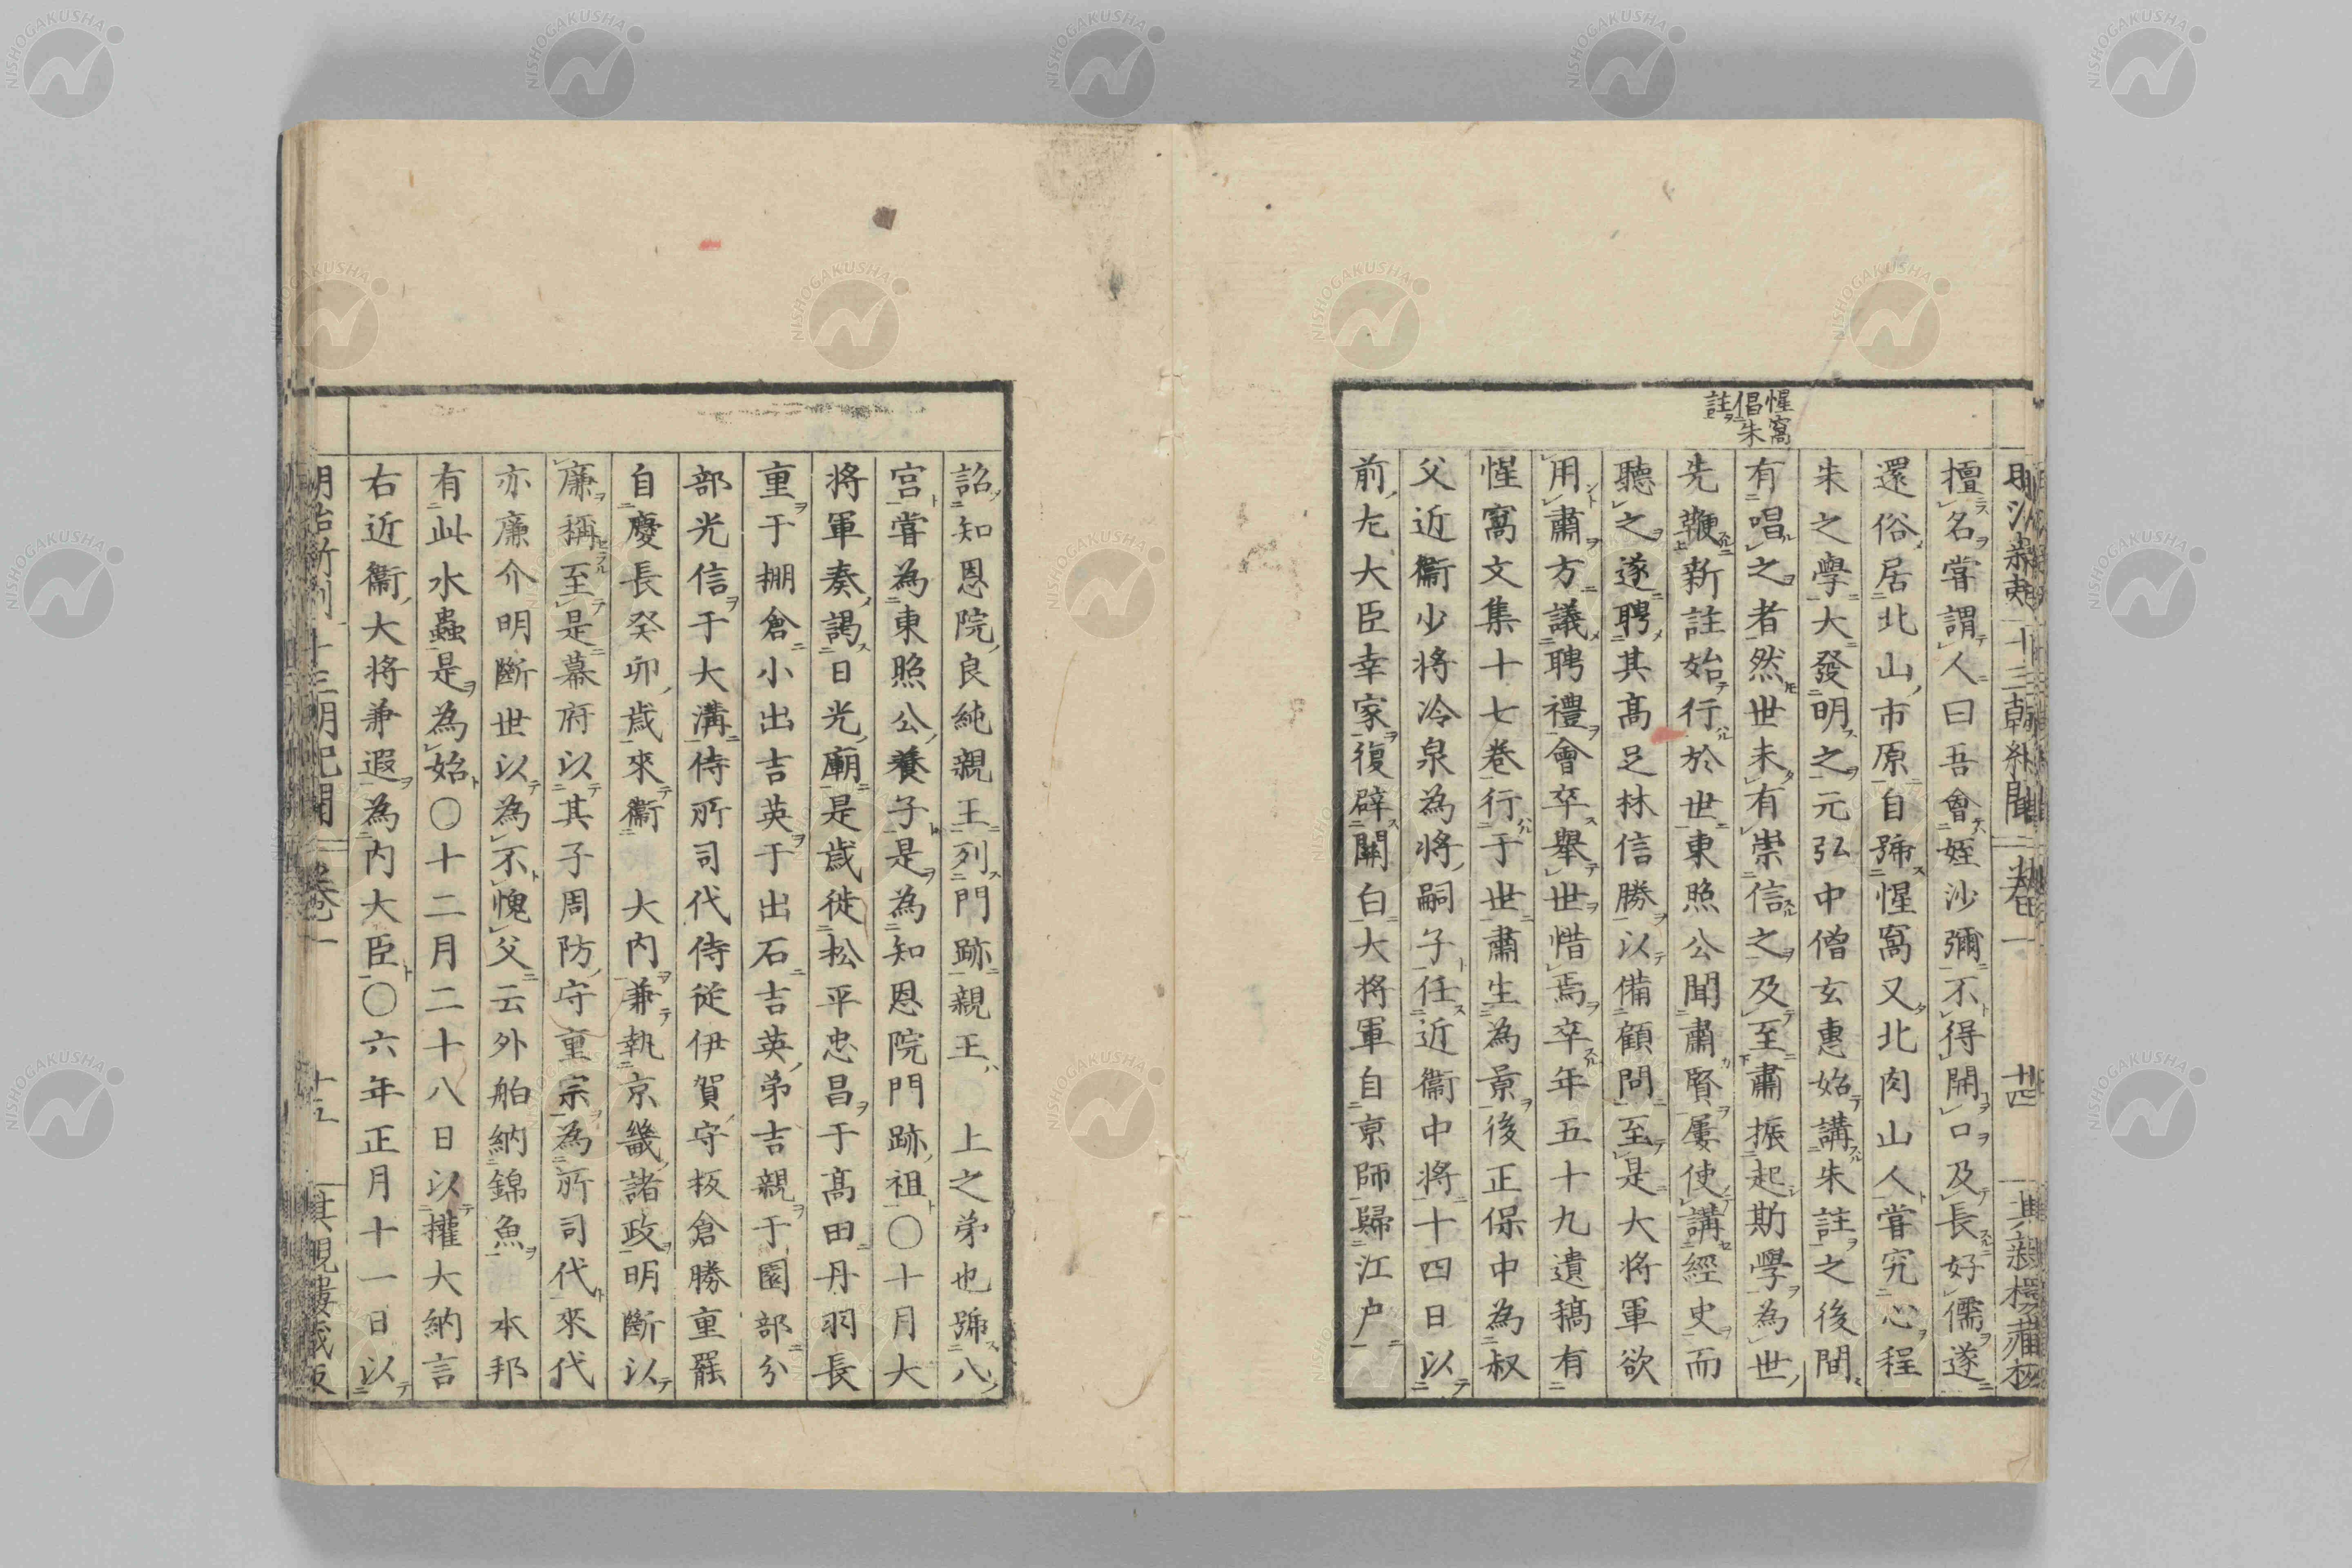 惺窩
倡朱
註
擅名嘗謂人曰吾會姪沙彌不得開口及長好儒遂
還俗居北山市原自號惺窩又北肉山人嘗究心程
朱之學大發明之元弘中僧玄惠始講朱註之後間
有唱之者然世未有崇信之及至肅振起斯學為世
先鞭新註始行於世東照公聞肅賢屢使講經史而
聽之遂聘其高足林信勝以備顧問至是大將軍欲
用肅方議聘禮會卒舉世惜焉卒年五十九遺稿有
惺窩文集十七卷行于世肅生為景後正保中為叔
父近衞少將冷泉為將嗣子任近衞中將十四日以
前左大臣幸家復辟關白大将軍自京師歸江户
詔知恩院良純親王列門跡親王上之弟也號八
宮嘗為東照公養子是為知恩院門跡祖〇十月大
將軍奏謁日光廟是歲徙松平忠昌于高田丹羽長
重于棚倉小出吉英于出石吉英弟吉親于園部分
部光信于大溝侍所司代侍從伊賀守板倉勝重罷
自慶長癸卯歲來衞大内兼執京畿諸政明斷以
廉稱至是幕府以其子周防守重宗為所司代來代
亦廉介明斷世以為不愧父云外舶納錦魚本邦
有此水蟲是為始〇十二月二十八日以權大納言
右近衞大将兼遐為内大臣〇六年正月十一日以
十三朝紀聞 卷一 十四
十三朝紀聞 卷一 十五
NISHOGAKUSHA